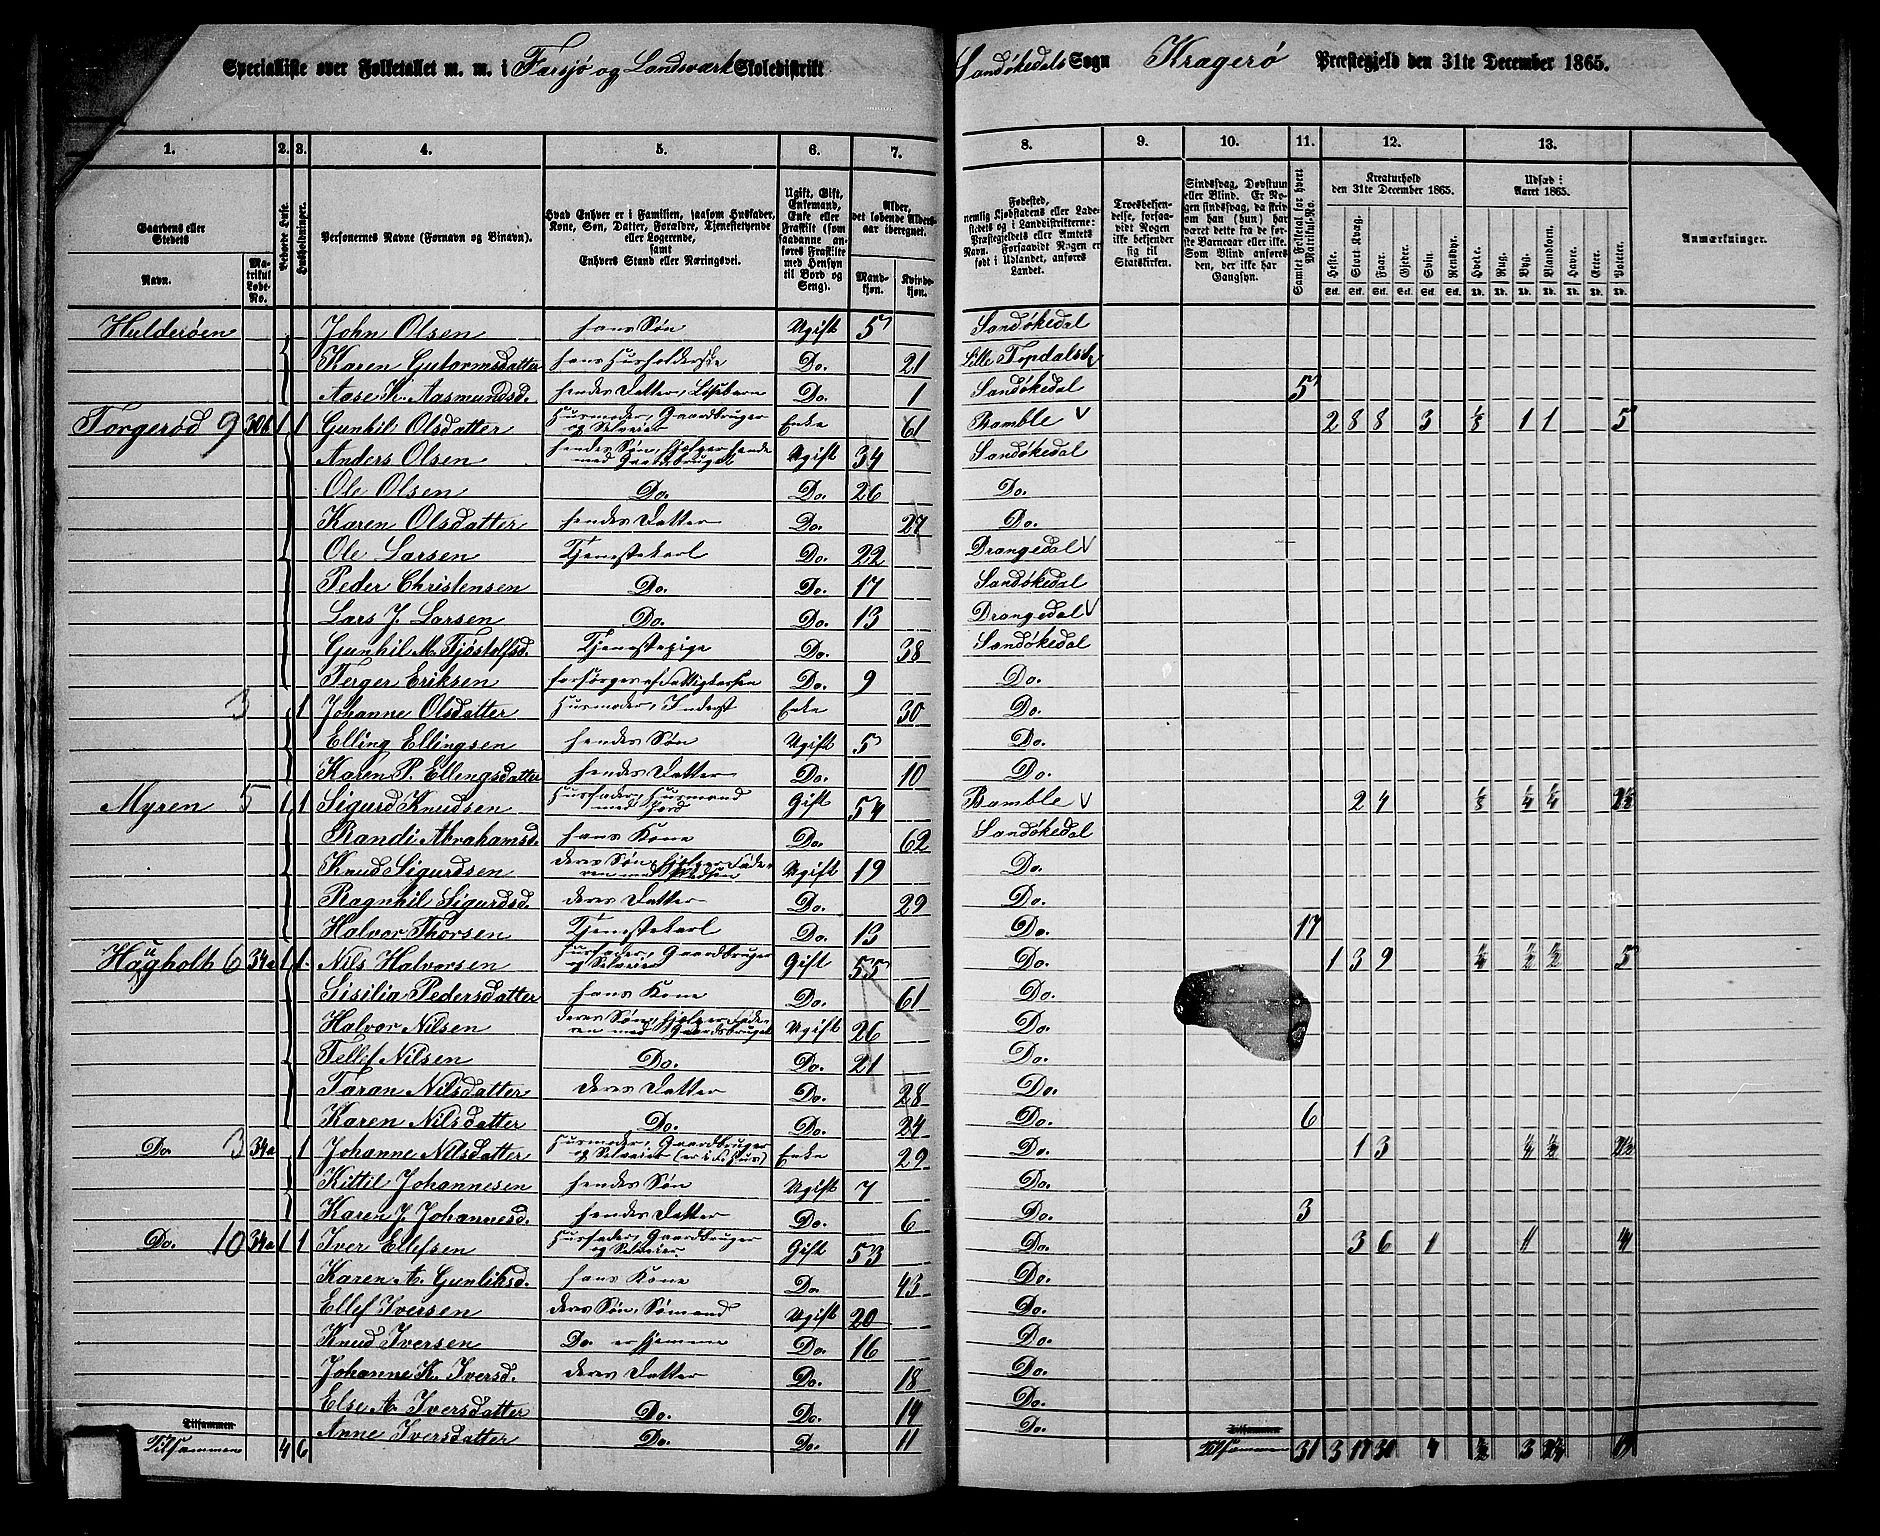 Specialliste over Folketallet m. m. i Farsjø og Landsværk Skoledistrikt Sandøkedals Sogn Kragerø Præstegjeld den 31te December 1865.
1. 2. 3. 4. 5. 6. 7. 8. 9. 10. 11. 12. 13.
Gaardens eller Stedets
Navn.
Matrikul Løbe-No.
Beboede Huse.
Husholdninger.
Personernes Navne (Fornavn og Binavn).
Hvad Enhver er i Familien, saasom Husfader, Kone, Søn, Datter, Forældre, Tjenestetyende eller Logerende,
samt
Enhvers Stand eller Næringsvei.
Ugift, Gift, Enkemand, Enke eller Fraskilt (som saadanne anføres Fraskilte med Hensyn til Bord og Seng).
Alder, det løbende Aldersaar iberegnet.
Mandkjøn.
Kvindekjøn.
Fødested,
nemlig Kjøbstadens eller Ladestedets og i Landdistrikterne: Præstegjeldets eller Amtets Navn. Forsaavidt Nogen er født i Udlandet, anføres Landet.
Troesbekjendelse, forsaavidt Nogen ikke bekjender sig til Statskirken.
Sindssvag, Døvstum eller Blind. Er Nogen sindssvag, da skriv om han (hun) har været dette fra de første Barneaar eller ikke. Som Blind anføres den, der ikke har Gangsyn.
Samlet Folketal for hvert Matrikul-No.
Kreaturhold
den 31te December 1865.
Heste. Stort Kvæg. Faar. Gjeder. Svin. Rensdyr.
Udsæd i
Aaret 1865.
Hvede. Rug. Byg. Blandkorn. Havre. Erter. Poteter.
Anmærkninger.
Hulderøen John Olsen hans Søn Ugift 5 Sandøkedal
Karen Gutormsdatter hans Husholderske Do. 21 Lille Topdals
Aase K. Aasmundsd. hendes Datter, Løsbarn Do. 1 Sandøkedal 5
Torgerød 9 30b 1 1 Gunhil Olsdatter Husmoder, Gaardbruger og Selveier Enke 61 Bamble V 2 8 8 3 1/8 1 1 5
Anders Olsen hendes Søn, hjelper hende med Gaardbruget Ugift 34 Sandøkedal
Ole Olsen Do. Do. 26 Do.
Karen Olsdatter hendes Datter Do. 27 Do.
Ole Larsen Tjenestekarl Do. 22 Drangedal V
Peder Christensen Do. Do. 17 Sandøkedal
Lars J. Larsen Do. Do. 13 Drangedal V
Gunhil M. Tjøstolfsd. Tjenestepige Do. 38 Sandøkedal
Terger Eriksen forsørges af Fattigkassen Do. 9 Do.
3 1 Johanne Olsdatter Husmoder, Inderst Enke 30 Do.
Elling Ellingsen hendes Søn Ugift 5 Do.
Karen P. Ellingsdatter hendes Datter Do. 10 Do.
Myren 5 1 1 Sigurd Knudsen Husfader, Husmand med Jord Gift 54 Bamble V 2 4 1/8 1/4 1/4 2 1/2
Randi Abrahamsd. hans Kone Do. 62 Sandøkedal
Knud Sigurdsen deres Søn, hjelper Faderen med Pladsen Ugift 19 Do.
Ragnhil Sigurdsd. deres Datter Do. 29 Do.
Halvor Thorsen Tjenestekarl Do. 13 Do. 17
Haugholt 6 34a 1 1 Nils Halvorsen Husfader, Gaardbruger og Selveier Gift 55 Do. 1 3 9 1/4 1/2 1/2 5
Sisilia Pedersdatter hans Kone Do. 61 Do.
Halvor Nilsen deres Søn, hjelper Faderen med Gaardsbruget Ugift 26 Do.
Tellef Nilsen Do. Do. 21 Do.
Taran Nilsdatter deres Datter Do. 28 Do.
Karen Nilsdatter Do. Do. 24 Do. 6
Do. 3 34a 1 Johanne Nilsdatter Husmoder, Gaardbruger og Selveier (er i F. Huus) Enke 29 Do. 1 3 1/4 1/4 2 1/2
Kittil Johannesen hendes Søn Ugift 7 Do.
Karen J. Johannesd. hendes Datter Do. 6 Do. 3
Do. 10 34a 1 1 Iver Ellefsen Husfader, Gaardbruger og Selveier Gift 53 Do. 3 6 1 1 4
Karen A. Gunliksd. hans Kone Do. 43 Do.
Ellef Iversen deres Søn, Sømand Ugift 20 Do.
Knud Iversen Do. er hjemme Do. 16 Do.
Johanne K. Iversd. deres Datter Do. 18 Do.
Else A. Iversdatter Do. Do. 14 Do.
Anne Iversdatter Do. Do. 11 Do.
Tilsammen Tilsammen
Tilsammen 4 6 Tilsammen 31 3 17 30 4 1/2 3 19